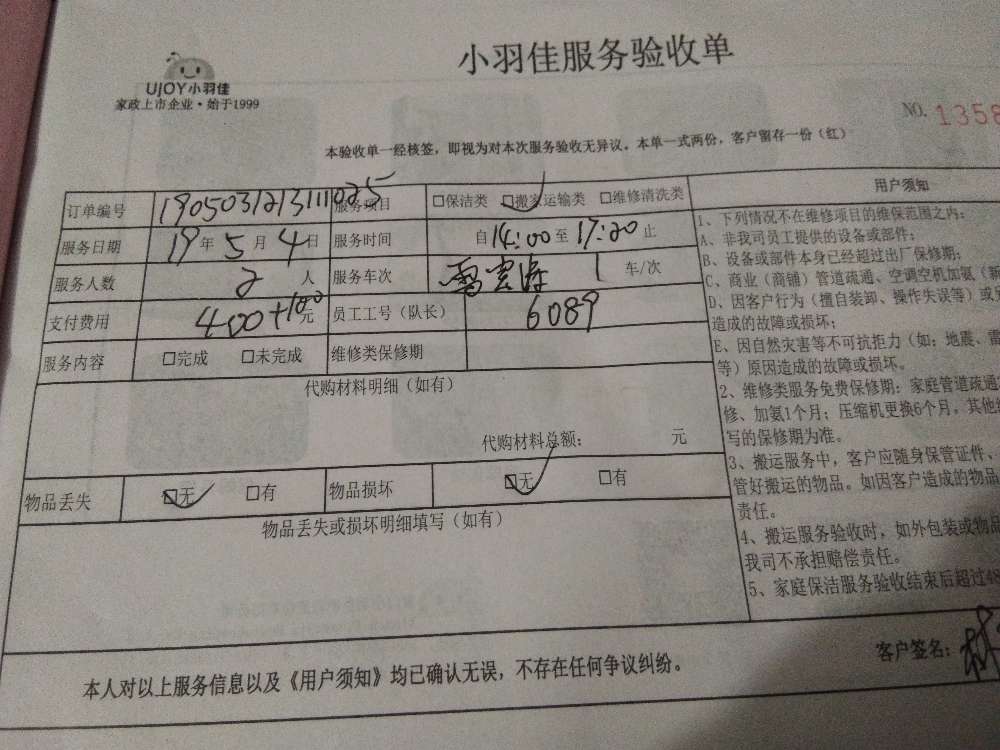 小羽佳服务验收单
UJOY小羽佳
家政上市企业·始于1999
NO. 1358
本验收单一经核签，即视为对本次服务验收无异议。本单一式两份，客户留存一份（红）
订单编号 190503121311025 服务项目 □保洁类 □搬家运输类 □维修清洗类
服务日期 19年5月4日 服务时间 自14:00至17:20止
服务人数 2人 服务车次 1 车/次
支付费用 400+100元 员工工号（队长） 6089
服务内容 □完成 □未完成 维修类保修期
代购材料明细（如有）
代购材料总额： 元
物品丢失 □无 □有 物品损坏 □无 □有
物品丢失或损坏明细填写（如有）
用户须知
1、下列情况不在维修项目的维保范围之内：
A、非我司员工提供的设备或部件；
B、设备或部件本身已经超过出厂保修期；
C、商业（商铺）管道疏通、空调空机加氨（新
D、因客户行为（擅自装卸、操作失误等）或
造成的故障或损坏；
E、因自然灾害等不可抗拒力（如：地震、雷
等）原因造成的故障或损坏。
2、维修类服务免费保修期：家庭管道疏通
修、加氨1个月；压缩机更换6个月，其他
写的保修期为准。
3、搬运服务中，客户应随身保管证件、
管好搬运的物品。如因客户造成的物品
责任。
4、搬运服务验收时，如外包装或物品
我司不承担赔偿责任。
5、家庭保洁服务验收结束后超过48
本人对以上服务信息以及《用户须知》均已确认无误，不存在任何争议纠纷。
客户签名：